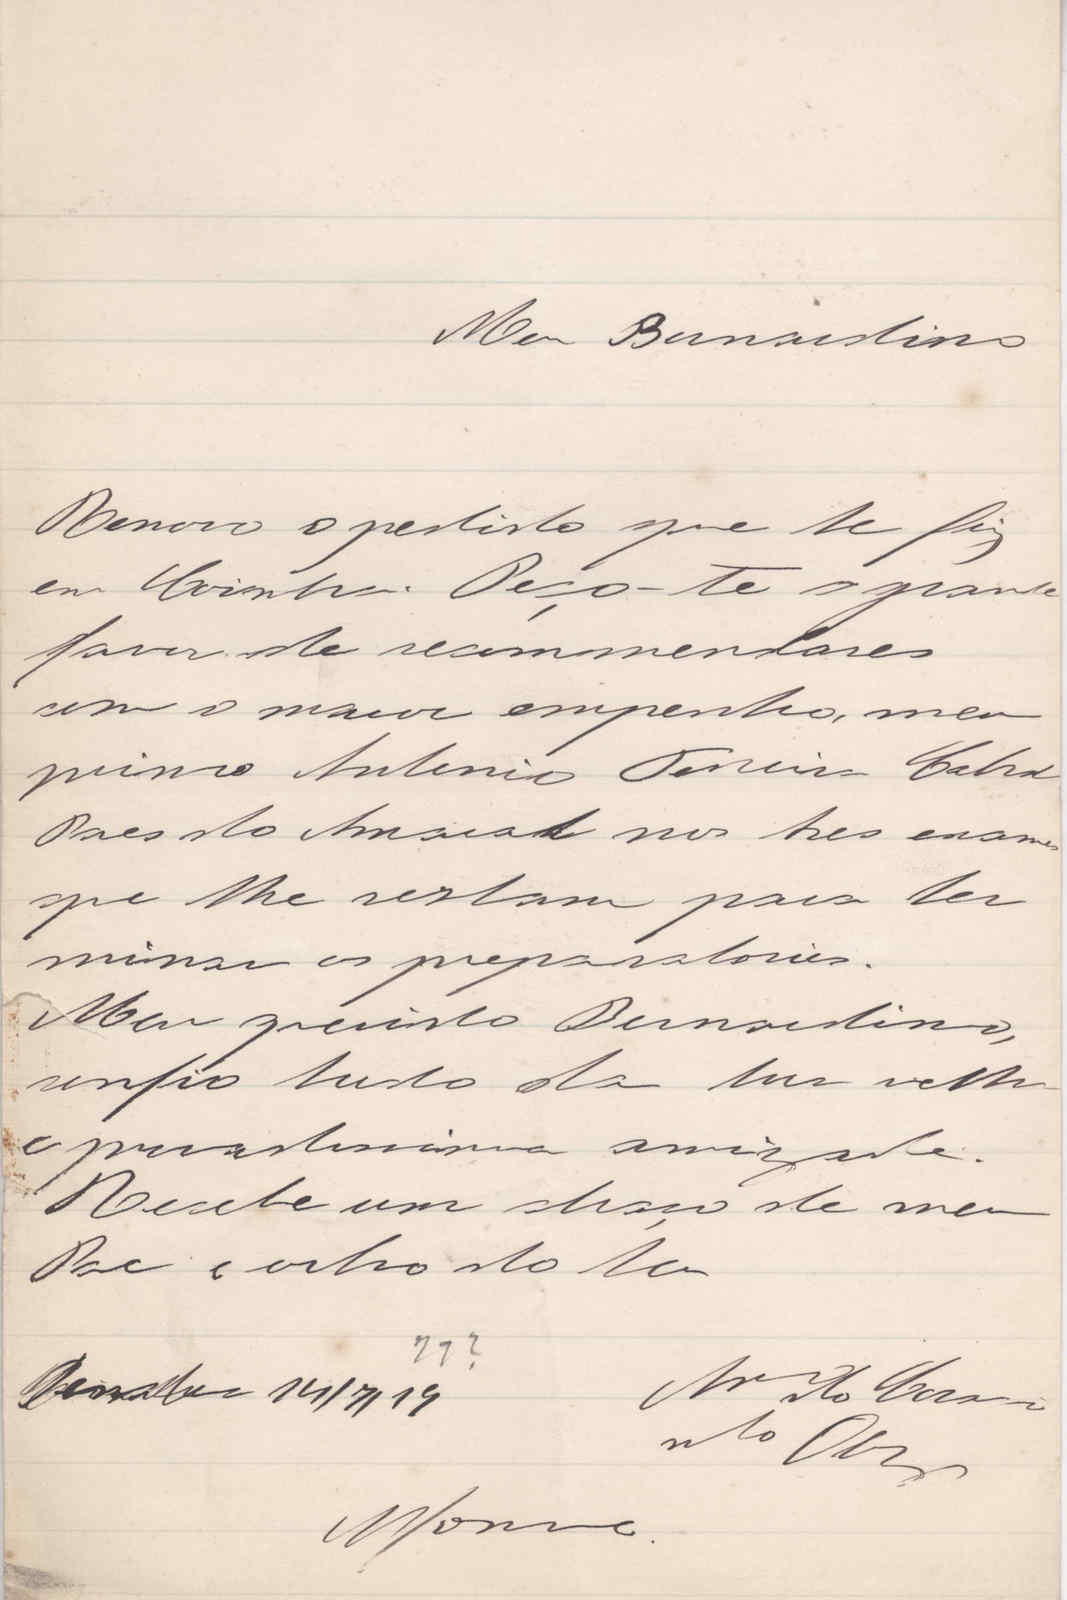 Meu Bernardino
Renovo o pedido que te fiz
em Coimbra. Peço-te o grande
favor de recommendares
com o maior empenho, meu
primo Antonio Ferreira Cabral
Paes do Amaral nos tres exames
que lhe restam para ter
minar os preparatorios.
Meu querido Bernardino,
confio tudo da tua velha
e amizade.
Recebe um abraço de meu
Pae e outro do teu
77?
14/7/19
Am do Cora
do
Affonso.